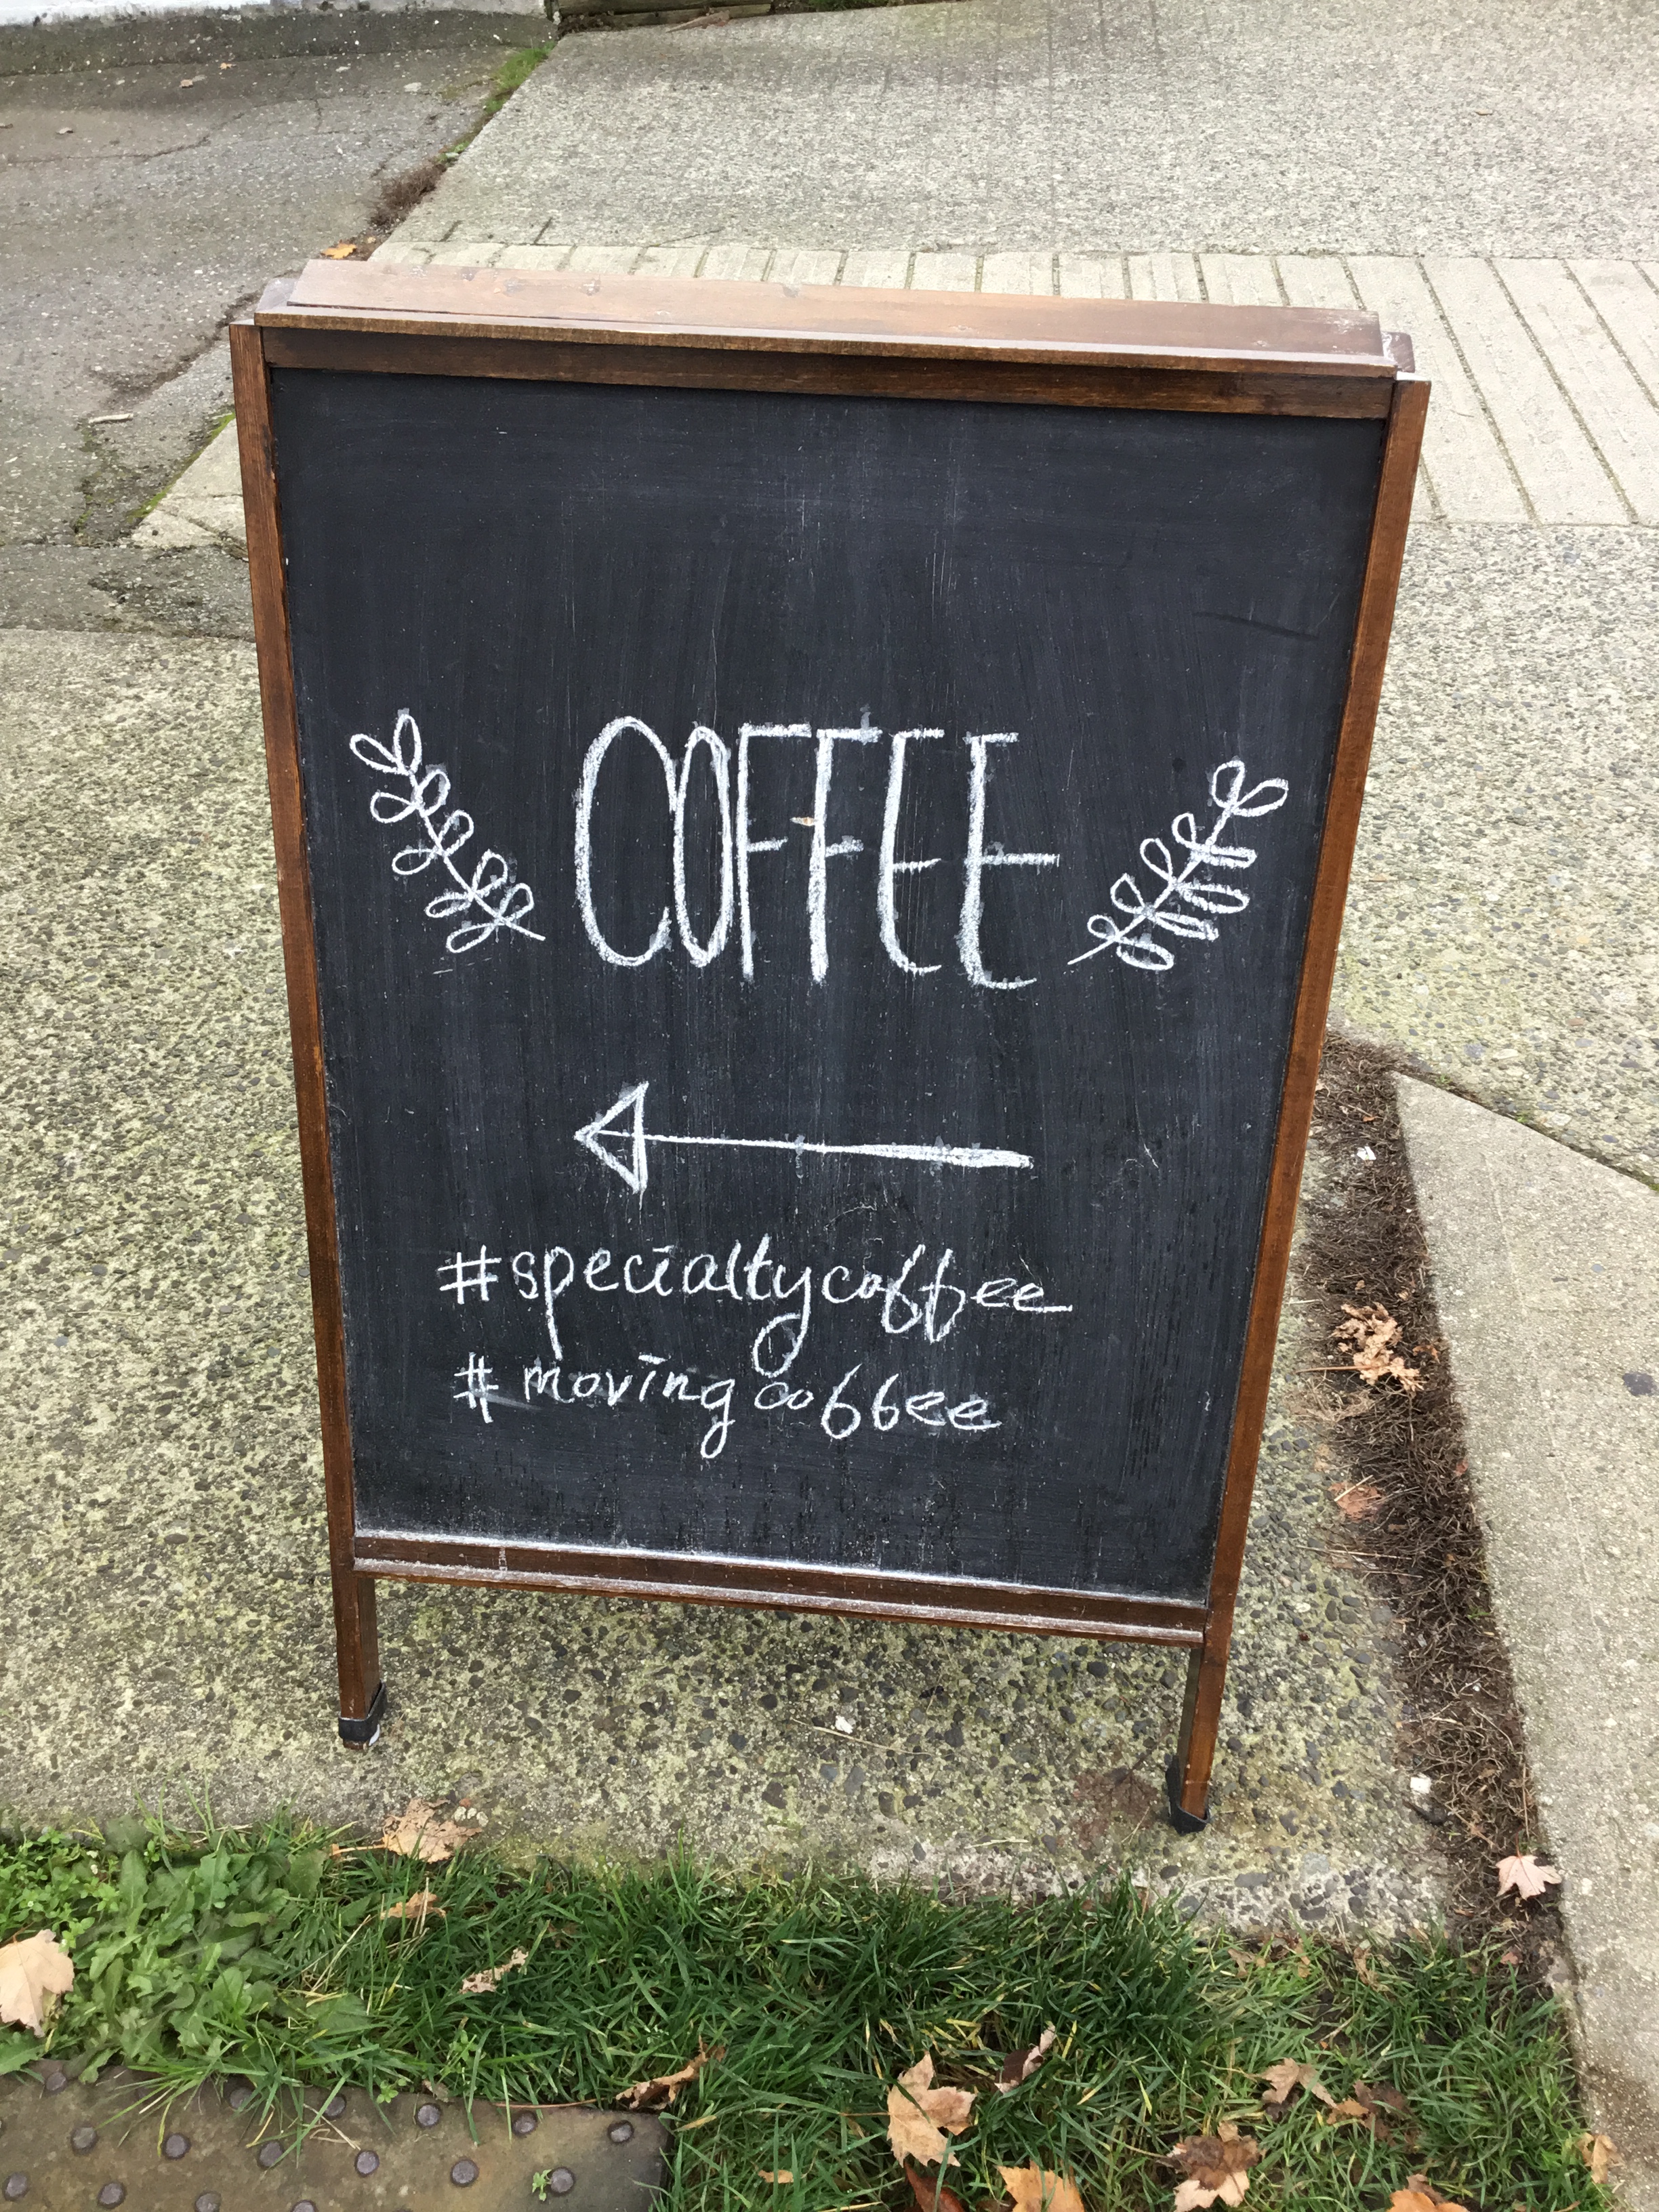 COFFEE
#specialtycoffee
#movingcoffee